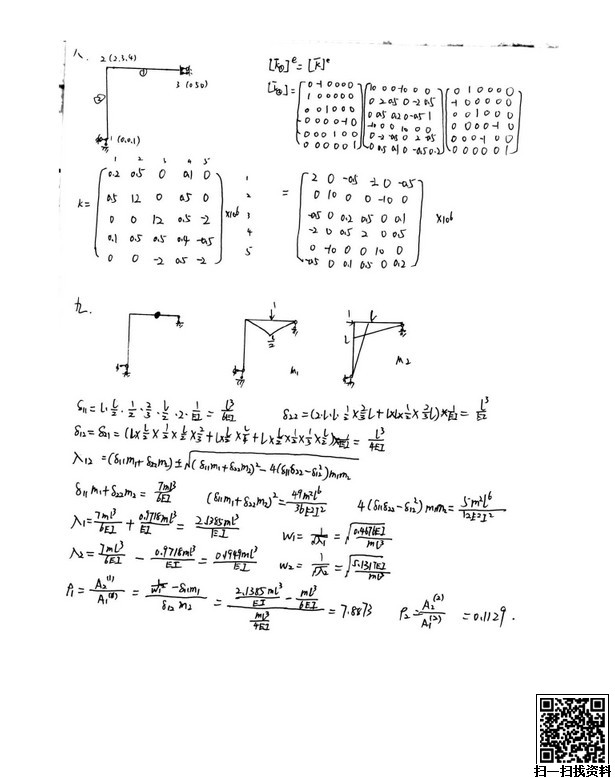 八、
2 (2,3,4)
①
3 (0,5,0)
②
1 (0,0,1)
[k̄①]ᵉ = [k̄]ᵉ
[k̄①] =
0 -1 0 0 0 0
1 0 0 0 0 0
0 0 1 0 0 0
0 0 0 0 -1 0
0 0 0 1 0 0
0 0 0 0 0 1
10 0 0 -10 0 0
0 2 0.5 0 -2 0.5
0 0.5 0.2 0 -0.5 0.1
-10 0 0 10 0 0
0 1 0 0 0 0
-1 0 0 0 0 0
0 0 1 0 0 0
0 0 0 0 1 0
0 0 0 -1 0 0
0 0 0 0 0 1
1 2 3 4 5
k =
0.2 0.5 0 0.1 0
0.5 12 0 0.5 0
0 0 12 0.5 -2
0.1 0.5 0.5 0.4 -0.5
0 0 -2 0.5 -2
×10⁶
1
2
3
4
5
=
2 0 -0.5 -2 0 -0.5
0 10 0 0 -10 0
-0.5 0 0.2 0.5 0 0.1
-2 0 0.5 2 0 0.5
0 -10 0 0 10 0
-0.5 0 0.1 0.5 0 0.2
×10⁶
九、
1
l/2
M₁
1
l
l
M₂
δ₁₁ = l·l/2·1/2·2/3·l/2·2·1/EI = l³/6EI
δ₂₂ = (2·l·l·1/2×2/3l + l×l×1/2×2/3l)×1/EI = l³/EI
δ₁₂ = δ₂₁ = l³/4EI
λ₁₂ = (δ₁₁m₁+δ₂₂m₂) ± √((δ₁₁m₁+δ₂₂m₂)² - 4(δ₁₁δ₂₂-δ₁₂²)m₁m₂
δ₁₁m₁+δ₂₂m₂ = 7ml³/6EI
(δ₁₁m₁+δ₂₂m₂)² = 49m²l⁶/36E²I²
4(δ₁₁δ₂₂-δ₁₂²)m₁m₂ = 5m²l⁶/12E²I²
λ₁ = 7ml³/6EI + 0.9718ml³/EI = 2.1385ml³/EI
W₁ = 1/√λ₁ = √(0.4676EI/ml³)
λ₂ = 7ml³/6EI - 0.9718ml³/EI = 0.1949ml³/EI
W₂ = 1/√λ₂ = √(5.1317EI/ml³)
ρ₁ = A₂⁽¹⁾/A₁⁽¹⁾ = (1/W₁² - δ₁₁m₁)/(δ₁₂m₂) = (2.1385ml³/EI - ml³/6EI)/(ml³/4EI) = 7.8873
ρ₂ = A₂⁽²⁾/A₁⁽²⁾ = 0.1129.
扫一扫找资料